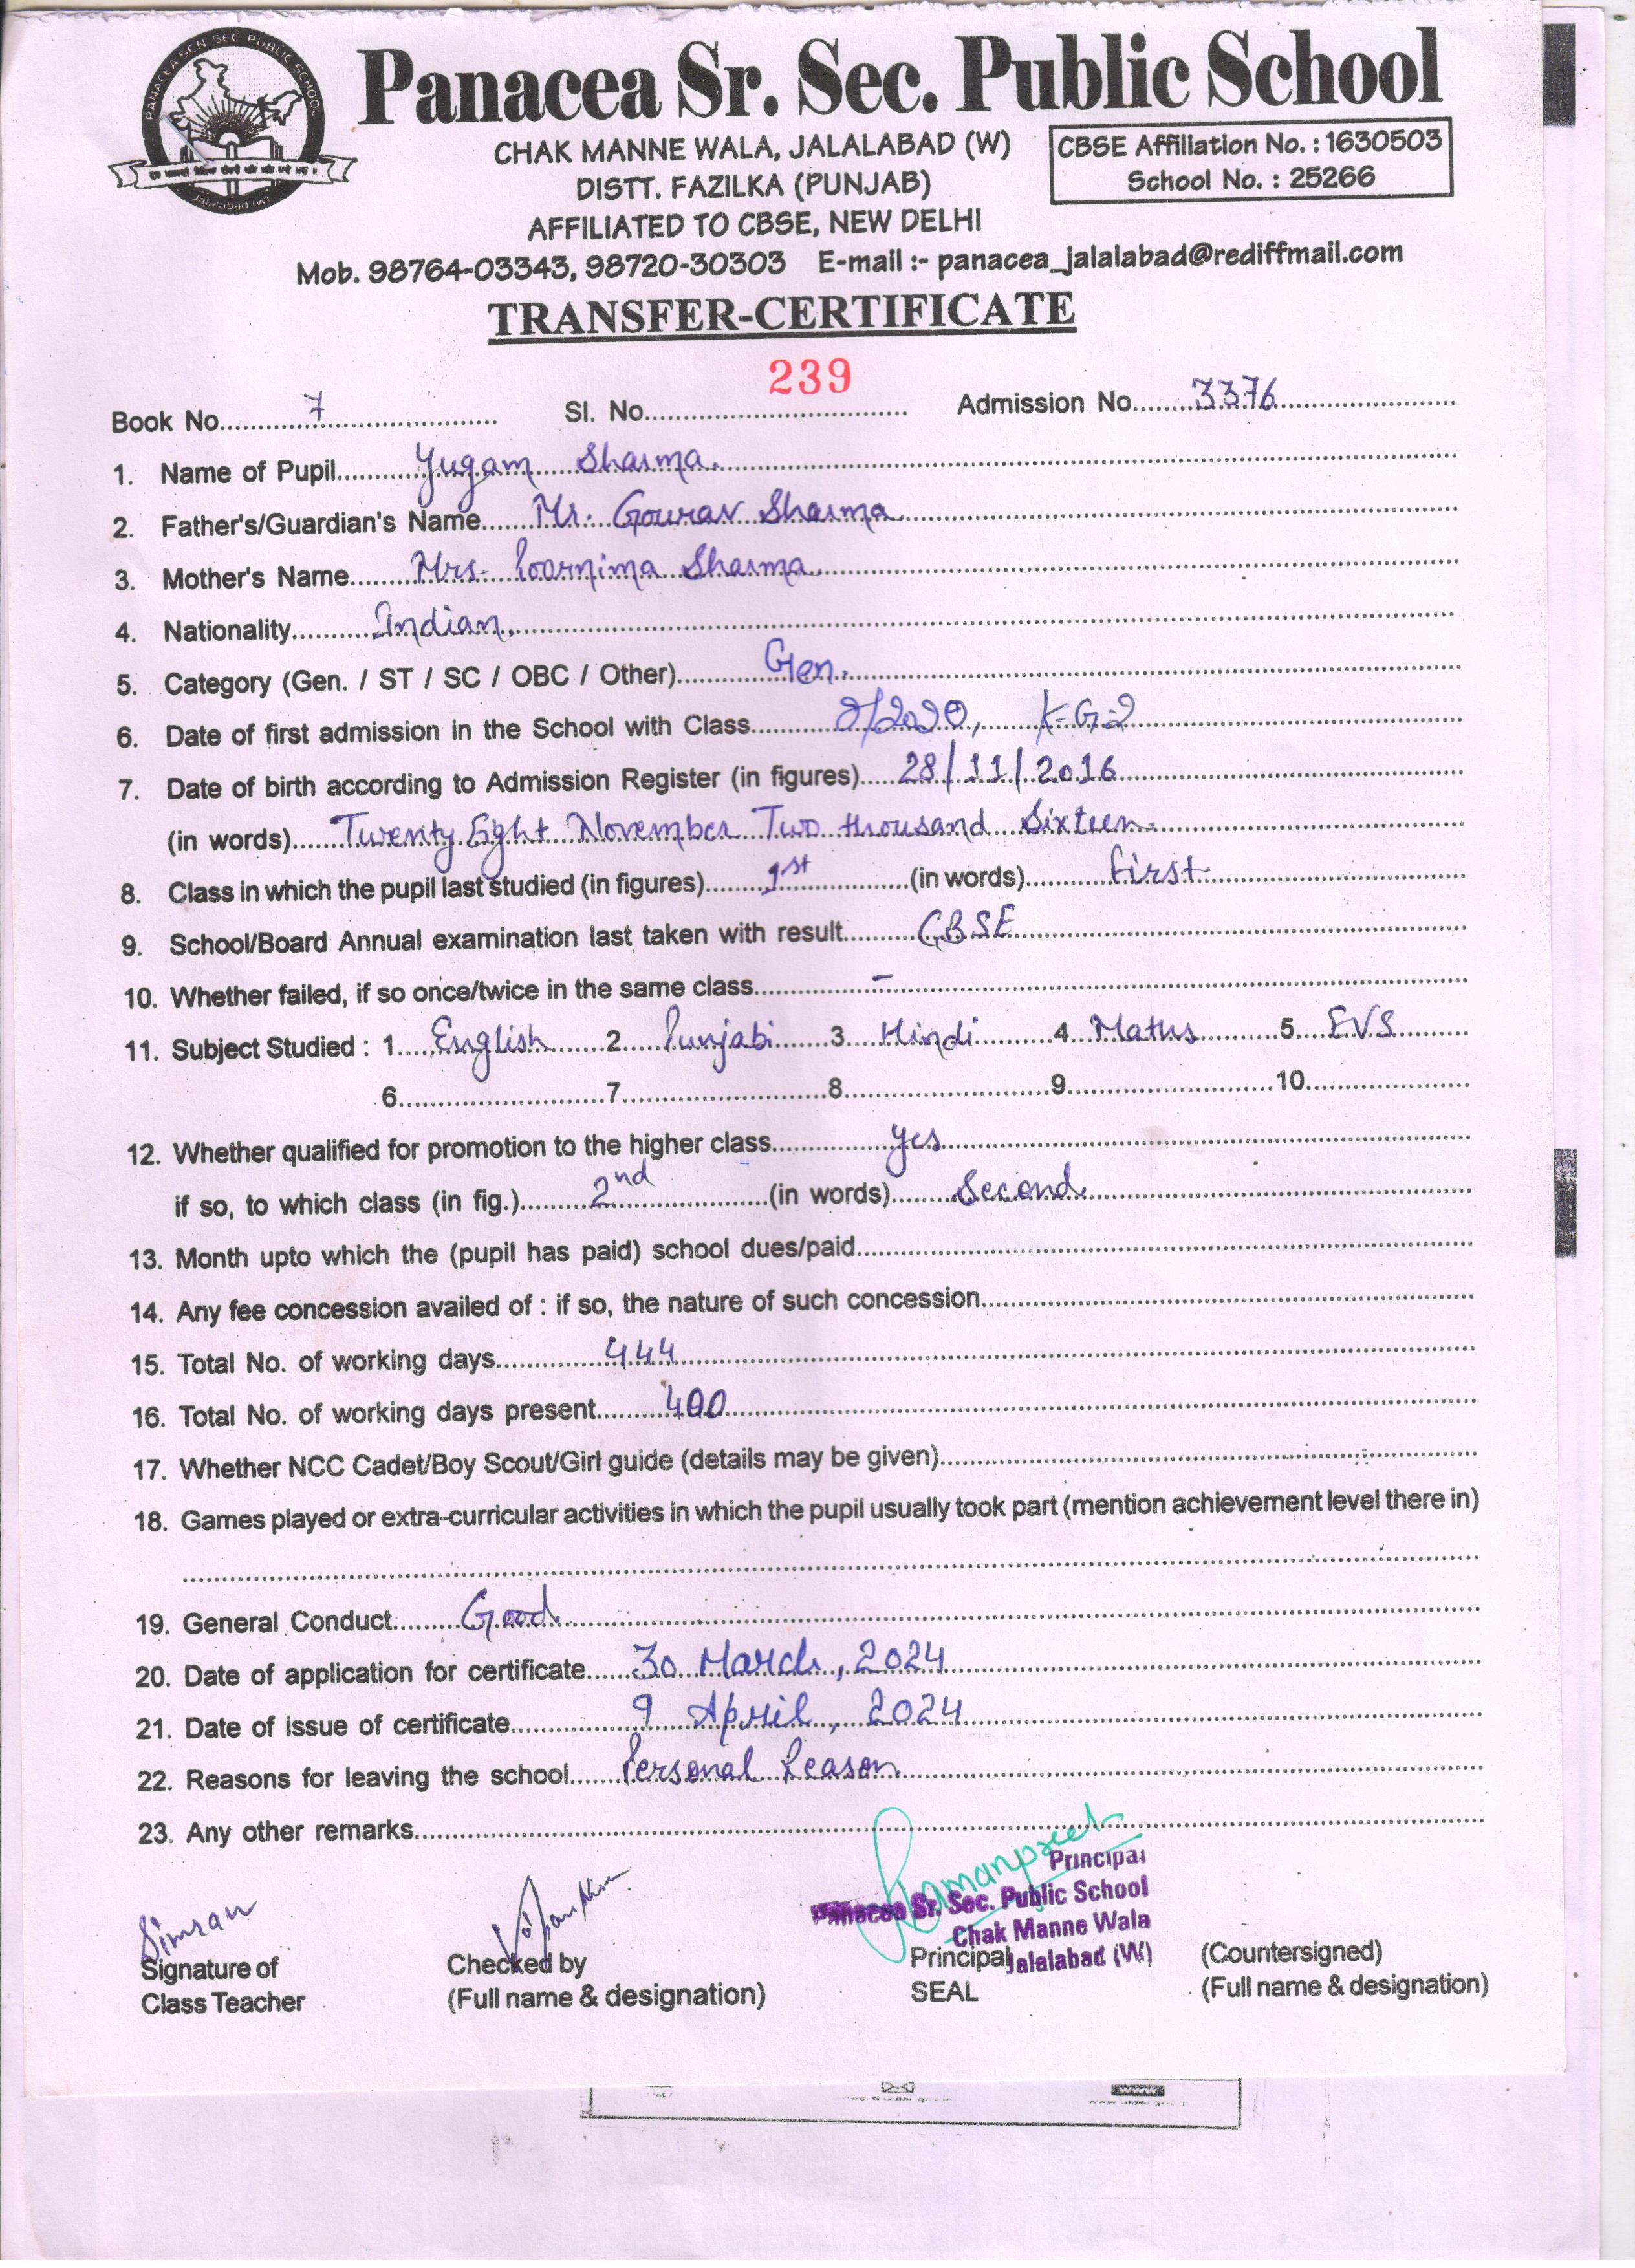 PANACEA SCN SEC PUBLIC SCHOOL
Jalalabad (W)
Panacea Sr. Sec. Public School
CHAK MANNE WALA, JALALABAD (W)
DISTT. FAZILKA (PUNJAB)
AFFILIATED TO CBSE, NEW DELHI
CBSE Affiliation No. : 1630503
School No. : 25266
Mob. 98764-03343, 98720-30303 E-mail :- panacea_jalalabad@rediffmail.com
TRANSFER-CERTIFICATE
239
Book No. 7 Sl. No. Admission No. 3376
1. Name of Pupil Yugam Sharma.
2. Father's/Guardian's Name Mr. Gourav Sharma
3. Mother's Name Mrs. Poornima Sharma
4. Nationality Indian.
5. Category (Gen. / ST / SC / OBC / Other) Gen.
6. Date of first admission in the School with Class /2020, K-G-2
7. Date of birth according to Admission Register (in figures) 28/11/2016
(in words) Twenty Eight November Two thousand Sixteen.
8. Class in which the pupil last studied (in figures) 1st (in words) first
9. School/Board Annual examination last taken with result CBSE
10. Whether failed, if so once/twice in the same class -
11. Subject Studied : 1 English 2 Punjabi 3 Hindi 4 Maths 5 EVS
6 7 8 9 10
12. Whether qualified for promotion to the higher class yes
if so, to which class (in fig.) 2nd (in words) Second
13. Month upto which the (pupil has paid) school dues/paid
14. Any fee concession availed of : if so, the nature of such concession
15. Total No. of working days 444
16. Total No. of working days present 400
17. Whether NCC Cadet/Boy Scout/Girl guide (details may be given)
18. Games played or extra-curricular activities in which the pupil usually took part (mention achievement level there in)
19. General Conduct Good
20. Date of application for certificate 30 March, 2024
21. Date of issue of certificate 9 April, 2024
22. Reasons for leaving the school Personal Reason
23. Any other remarks
Ramanpreet
Principal
Panacea Sr. Sec. Public School
Chak Manne Wala
Jalalabad (W)
Simran
Signature of Checked by Principal (Countersigned)
Class Teacher (Full name & designation) SEAL (Full name & designation)
www